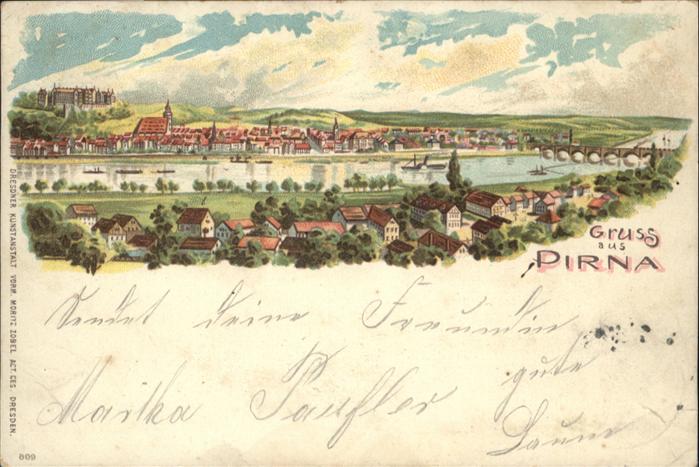 Gruss
aus
PIRNA
DRESDNER KUNSTANSTALT VORM. MORITZ ZOBEL ACT.GES. DRESDEN.
Sendet deine Freundin
Martha Päufler gute
Laune
609